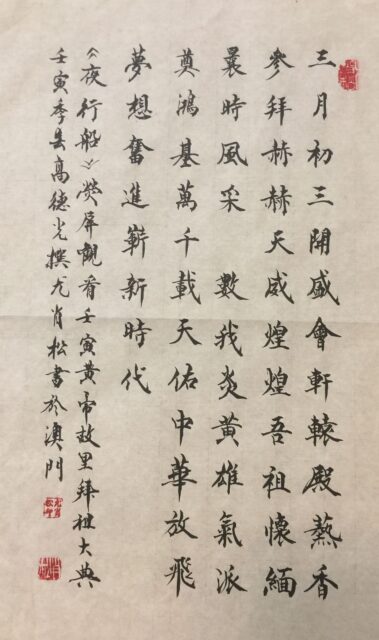 三月初三開盛會軒轅殿爇香
參拜赫赫天威煌煌吾祖懷緬
曩時風采 數我炎黃雄氣派
奠鴻基萬千載天佑中華放飛
夢想奮進嶄新時代
《夜行船》熒屏觀看壬寅黃帝故里拜祖大典
壬寅季春高德光撰尤肖松書於澳門